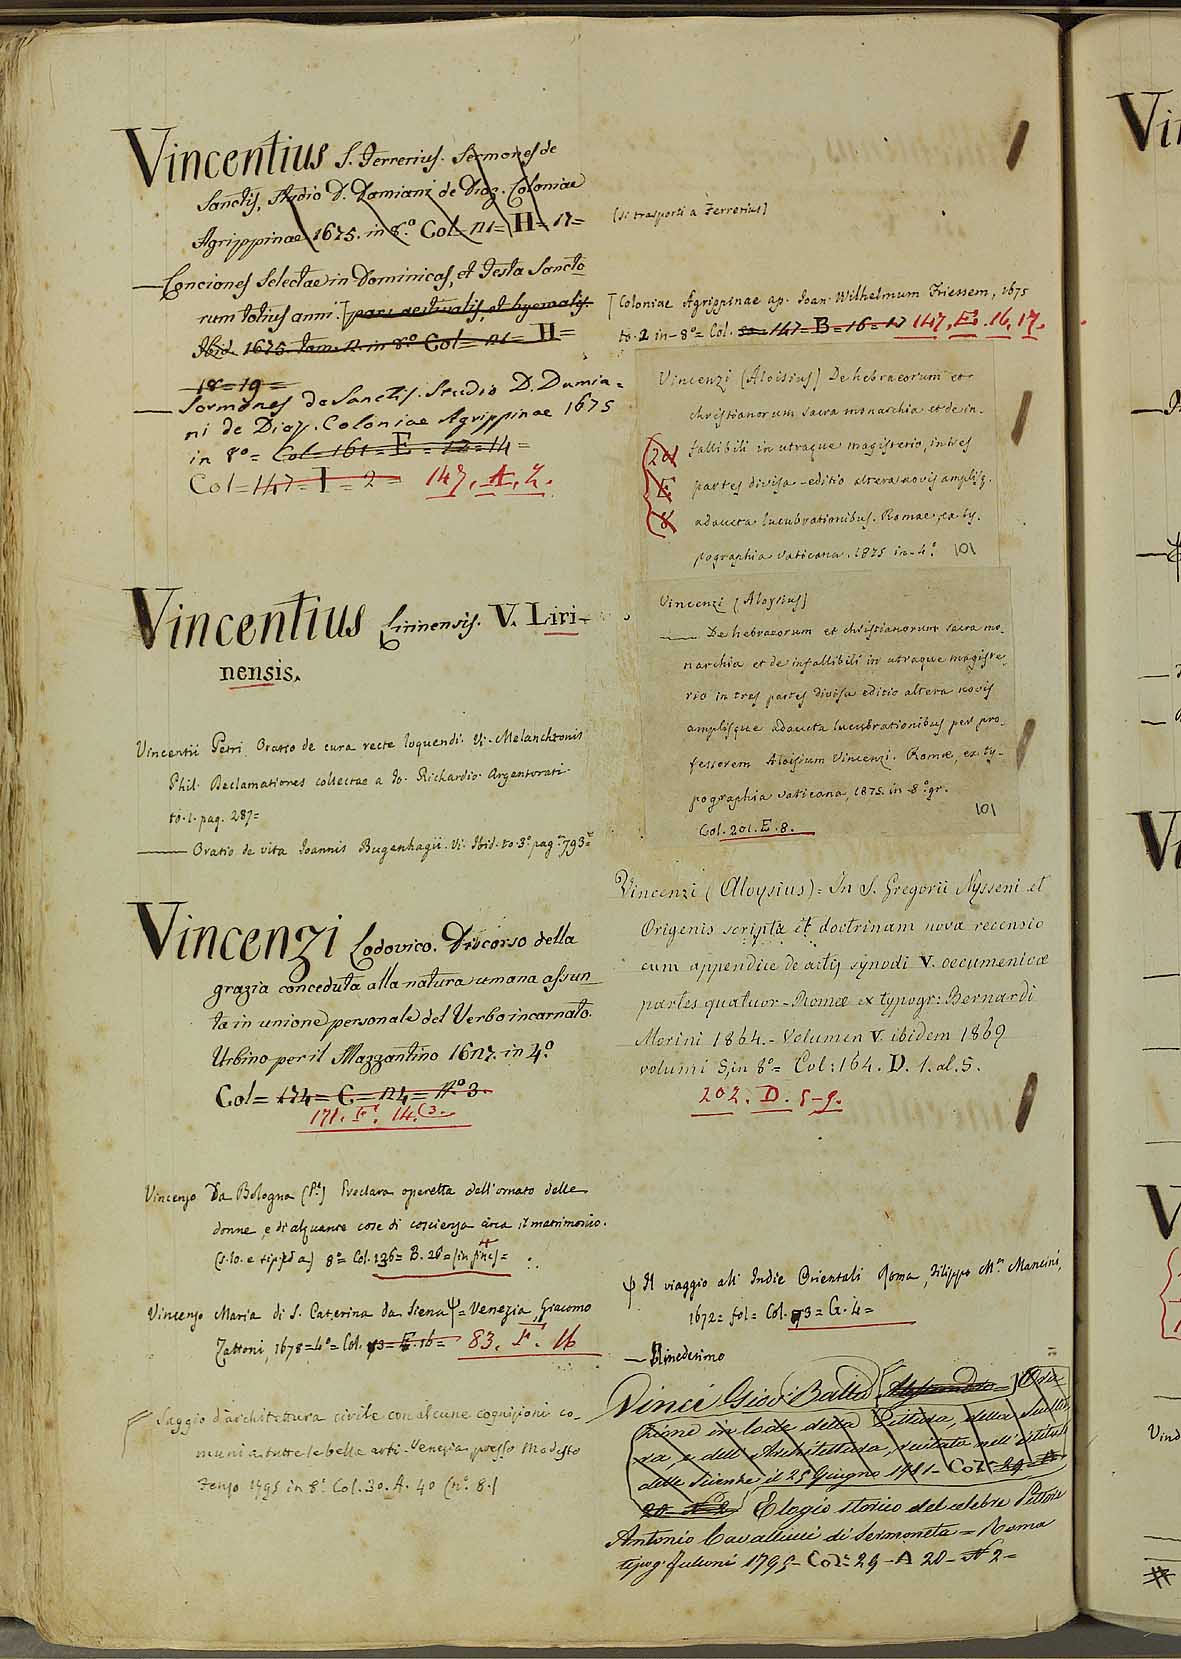 Vincentius S. Ferrerius. Sermones de
Sanctis, Studio D. Damiani de Diaz. Coloniae
Agrippinae 1675. in 8.º Col = 121 = H = 17 =
— Conciones Selectae in Dominicas, et Festa Sancto
rum totius anni. [pars aestivalis, et hyemalis.
Ibid. 1675. Tom. 2. in 8º Col = 121 = H =
18 = 19 =
— Sermones de Sanctis. Studio D. Damia =
ni de Diaz. Coloniae Agrippinae 1675
in 8º = Col = 161 = E = 12 = 14 =
Col = 147 = I = 2 147. A. 2.
Vincentius Lirinensis. V. Liri-
nensis.
Vincentii Petri Oratio de cura recte loquendi. Vi. Melanchtonis
Phil. Declamationes collectae a Jo. Richardio. Argentorati
to. 1. pag. 287 =
— Oratio de vita Joannis Bugenhagii. Vi. Ibid. to. 3º pag. 793 =
Vincenzi Lodovico. Discorso della
grazia conceduta alla natura umana assun
ta in unione personale del Verbo incarnato.
Urbino per il Mazzantino 1627. in 4.º
Col = 174 = C = 24 = Nº 3.
171. F. 14. (3.
Vincenzo Da Bologna (Pª) Preclara operetta dell'ornato delle
donne, e di alquante cose di coscienza circa il matrimonio.
(s. lo. e tip. ed a) 8º = Col. 136 = B. 28 = (in fine) =
Vincenzo Maria di S. Caterina da Siena ψ = Venezia, Giacomo
Zattoni, 1678 = 4º = Col. 73 = E. 16 = 83. F. 16
Saggio d'architettura civile con alcune cognizioni co-
muni a tutte le belle arti. Venezia presso Modesto
Fenzo 1795 in 8º. Col. 30. A. 40 (nº. 8.)
(Si trasporti a Ferrerius)
[Coloniae Agrippinae ap. Joan. Wilhelmum Friessem, 1675
to. 2 in - 8º = Col. 147 = B = 16 = 17 147. E. 16. 17.
Vincenzi (Aloisius) De hebraeorum et
christianorum sacra monarchia et de in-
fallibili in utroque magisterio, in tres
partes divisa - editio altera novis amplisq.
adaucta lucubrationibus. Romae, ex ty-
pographia vaticana. 1875 in - 4º. 101
201
E
8
Vincenzi (Aloysius)
— De hebraeorum et christianorum sacra mo-
narchia et de infallibili in utroque magiste-
rio in tres partes divisa editio altera novis
amplisque adaucta lucubrationibus per pro-
fessorem Aloisium Vincenzi. Romae, ex ty-
pographia vaticana, 1875. in - 8º gr.
Col. 201. E. 8. 101
Vincenzi (Aloysius) = In S. Gregorii Nysseni et
Origenis scripta et doctrinam nova recensio
cum appendice de actis synodi V. oecumenicae
partes quatuor - Romae ex typogr: Bernardi
Morini 1864. - Volumen V. ibidem 1869
volumi 5, in 8º = Col: 164. D. 1. al. 5.
202. D. 5-9.
ψ Il viaggio all'Indie Orientali Roma, Filippo Mª Mancini,
1672 = fol = Col. 73 = G. 4 =
— Il medesimo
Vinci Giov: Batta [Ora
zione in lode della Pittura, della Scultu
ra, e dell'Architettura, recitata nell'
delle Scienze il 25 Giugno 1781 - Col: 29 -
20 - N 2] Elogio storico del celebre Pittore
Antonio Cavallucci di Sermoneta = Roma
tipog. Fulgoni 1795 - Col: 29 - A 20 - N 2 =